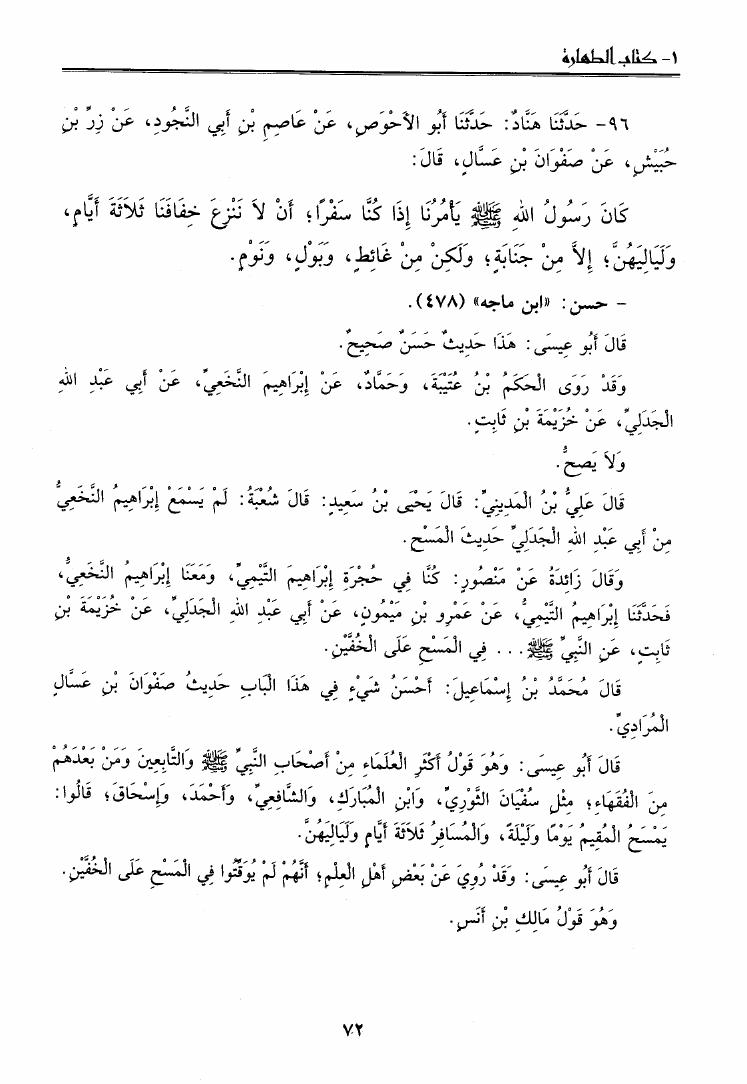 ١- كتاب الطهارة
٩٦- حَدَّثَنَا هَنَّادٌ: حَدَّثَنَا أَبُو الأَحْوَصِ، عَنْ عَاصِمِ بْنِ أَبِي النَّجُودِ، عَنْ زِرِّ بْنِ
حُبَيْشٍ، عَنْ صَفْوَانَ بْنِ عَسَّالٍ، قَالَ:
كَانَ رَسُولُ اللهِ ﷺ يَأْمُرُنَا إِذَا كُنَّا سَفْرًا؛ أَنْ لاَ نَنْزِعَ خِفَافَنَا ثَلاَثَةَ أَيَّامٍ،
وَلَيَالِيَهُنَّ؛ إِلاَّ مِنْ جَنَابَةٍ؛ وَلَكِنْ مِنْ غَائِطٍ، وَبَوْلٍ، وَنَوْمٍ.
- حسن: «ابن ماجه» (٤٧٨).
قَالَ أَبُو عِيسَى: هَذَا حَدِيثٌ حَسَنٌ صَحِيحٌ.
وَقَدْ رَوَى الْحَكَمُ بْنُ عُتَيْبَةَ، وَحَمَّادٌ، عَنْ إِبْرَاهِيمَ النَّخَعِيِّ، عَنْ أَبِي عَبْدِ اللهِ
الْجَدَلِيِّ، عَنْ خُزَيْمَةَ بْنِ ثَابِتٍ.
وَلاَ يَصِحُّ.
قَالَ عَلِيُّ بْنُ الْمَدِينِيِّ: قَالَ يَحْيَى بْنُ سَعِيدٍ: قَالَ شُعْبَةُ: لَمْ يَسْمَعْ إِبْرَاهِيمُ النَّخَعِيُّ
مِنْ أَبِي عَبْدِ اللهِ الْجَدَلِيِّ حَدِيثَ الْمَسْحِ.
وَقَالَ زَائِدَةُ عَنْ مَنْصُورٍ: كُنَّا فِي حُجْرَةِ إِبْرَاهِيمَ التَّيْمِيِّ، وَمَعَنَا إِبْرَاهِيمُ النَّخَعِيُّ،
فَحَدَّثَنَا إِبْرَاهِيمُ التَّيْمِيُّ، عَنْ عَمْرِو بْنِ مَيْمُونٍ، عَنْ أَبِي عَبْدِ اللهِ الْجَدَلِيِّ، عَنْ خُزَيْمَةَ بْنِ
ثَابِتٍ، عَنِ النَّبِيِّ ﷺ... فِي الْمَسْحِ عَلَى الْخُفَّيْنِ.
قَالَ مُحَمَّدُ بْنُ إِسْمَاعِيلَ: أَحْسَنُ شَيْءٍ فِي هَذَا الْبَابِ حَدِيثُ صَفْوَانَ بْنِ عَسَّالٍ
الْمُرَادِيِّ.
قَالَ أَبُو عِيسَى: وَهُوَ قَوْلُ أَكْثَرِ الْعُلَمَاءِ مِنْ أَصْحَابِ النَّبِيِّ ﷺ وَالتَّابِعِينَ وَمَنْ بَعْدَهُمْ
مِنَ الْفُقَهَاءِ؛ مِثْلِ سُفْيَانَ الثَّوْرِيِّ، وَابْنِ الْمُبَارَكِ، وَالشَّافِعِيِّ، وَأَحْمَدَ، وَإِسْحَاقَ؛ قَالُوا:
يَمْسَحُ الْمُقِيمُ يَوْمًا وَلَيْلَةً، وَالْمُسَافِرُ ثَلاَثَةَ أَيَّامٍ وَلَيَالِيَهُنَّ.
قَالَ أَبُو عِيسَى: وَقَدْ رُوِيَ عَنْ بَعْضِ أَهْلِ الْعِلْمِ؛ أَنَّهُمْ لَمْ يُوَقِّتُوا فِي الْمَسْحِ عَلَى الْخُفَّيْنِ.
وَهُوَ قَوْلُ مَالِكِ بْنِ أَنَسٍ.
٧٢